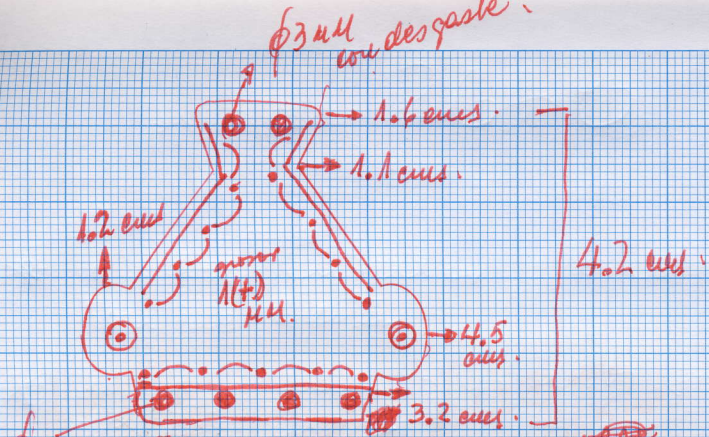 ϕ3 MM
con desgaste.
1.6 cms.
1.1 cms.
1.2 cms
grosor
1(+)
MM.
4.2 cms.
4.5
cms.
3.2 cms.